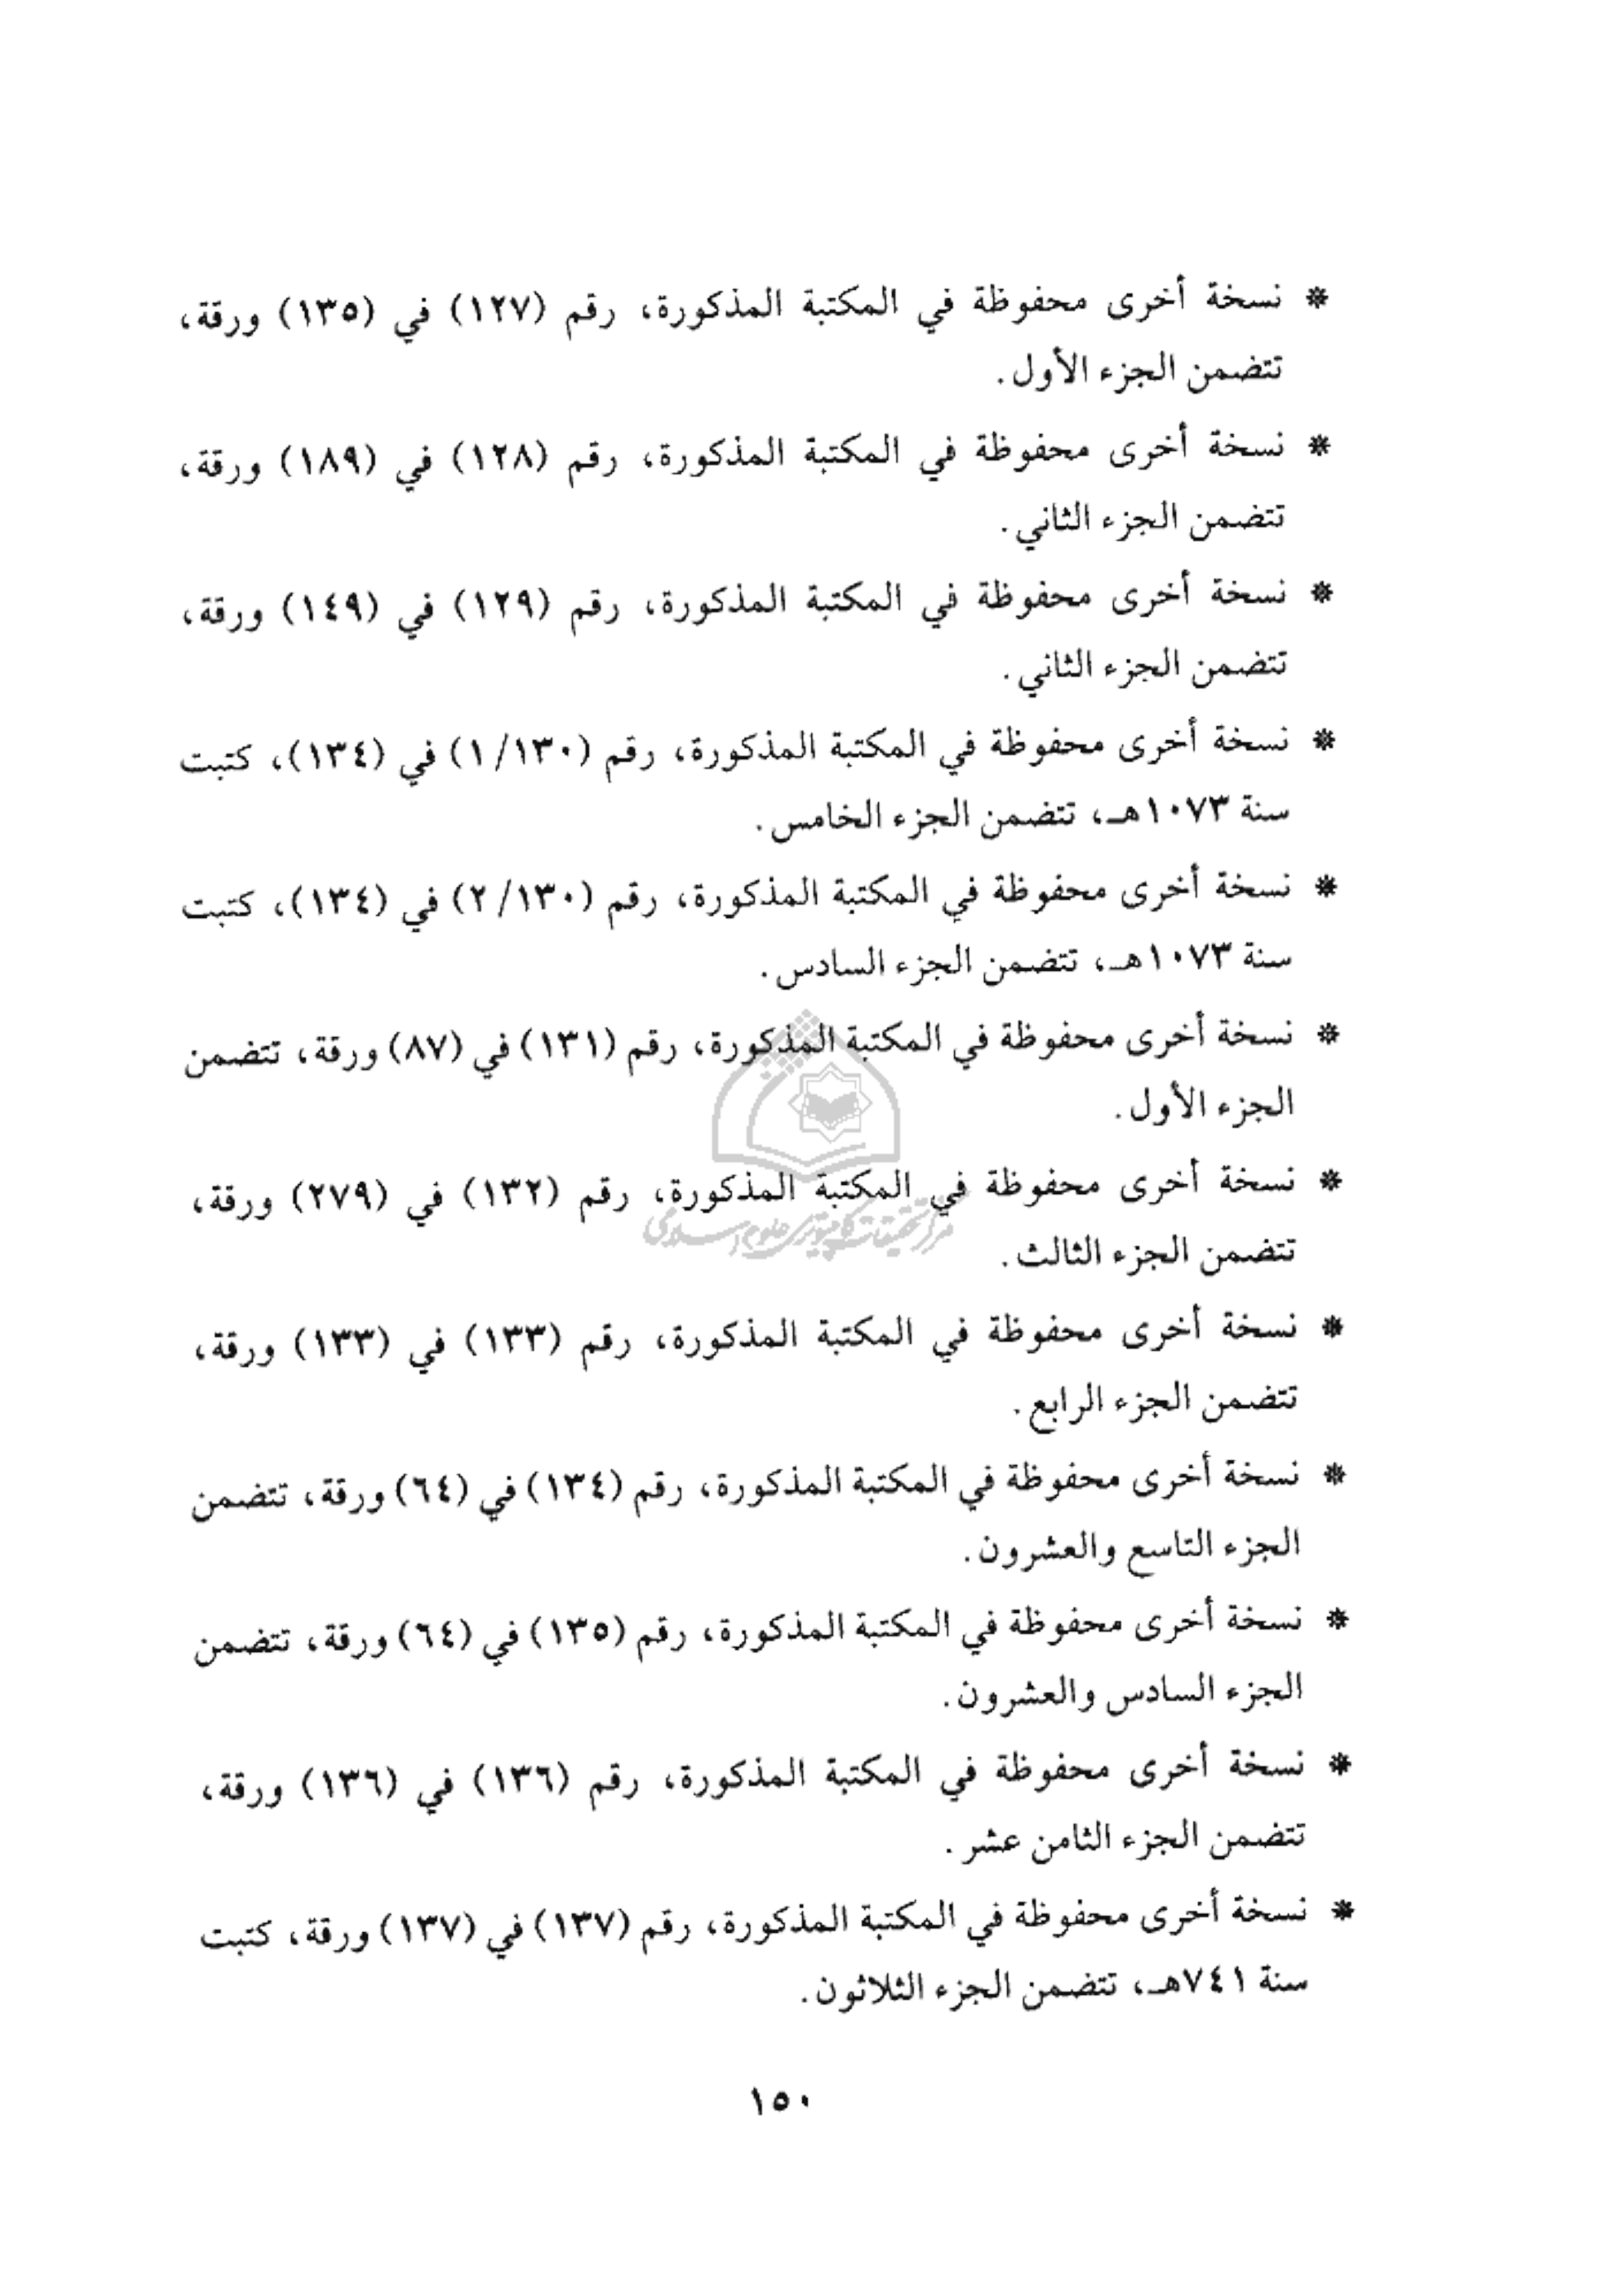 * نسخة أخرى محفوظة في المكتبة المذكورة، رقم (١٢٧) في (١٣٥) ورقة،
تتضمن الجزء الأول.
* نسخة أخرى محفوظة في المكتبة المذكورة، رقم (١٢٨) في (١٨٩) ورقة،
تتضمن الجزء الثاني.
* نسخة أخرى محفوظة في المكتبة المذكورة، رقم (١٢٩) في (١٤٩) ورقة،
تتضمن الجزء الثاني.
* نسخة أخرى محفوظة في المكتبة المذكورة، رقم (١/١٣٠) في (١٣٤)، كتبت
سنة ١٠٧٣هـ، تتضمن الجزء الخامس.
* نسخة أخرى محفوظة في المكتبة المذكورة، رقم (٢/١٣٠) في (١٣٤)، كتبت
سنة ١٠٧٣هـ، تتضمن الجزء السادس.
* نسخة أخرى محفوظة في المكتبة المذكورة، رقم (١٣١) في (٨٧) ورقة، تتضمن
الجزء الأول.
* نسخة أخرى محفوظة في المكتبة المذكورة، رقم (١٣٢) في (٢٧٩) ورقة،
مرکز تحقیقات کامپیوتری علوم اسلامی
تتضمن الجزء الثالث.
* نسخة أخرى محفوظة في المكتبة المذكورة، رقم (١٣٣) في (١٣٣) ورقة،
تتضمن الجزء الرابع.
* نسخة أخرى محفوظة في المكتبة المذكورة، رقم (١٣٤) في (٦٤) ورقة، تتضمن
الجزء التاسع والعشرون.
* نسخة أخرى محفوظة في المكتبة المذكورة، رقم (١٣٥) في (٦٤) ورقة، تتضمن
الجزء السادس والعشرون.
* نسخة أخرى محفوظة في المكتبة المذكورة، رقم (١٣٦) في (١٣٦) ورقة،
تتضمن الجزء الثامن عشر.
* نسخة أخرى محفوظة في المكتبة المذكورة، رقم (١٣٧) في (١٣٧) ورقة، كتبت
سنة ٧٤١هـ، تتضمن الجزء الثلاثون.
١٥٠